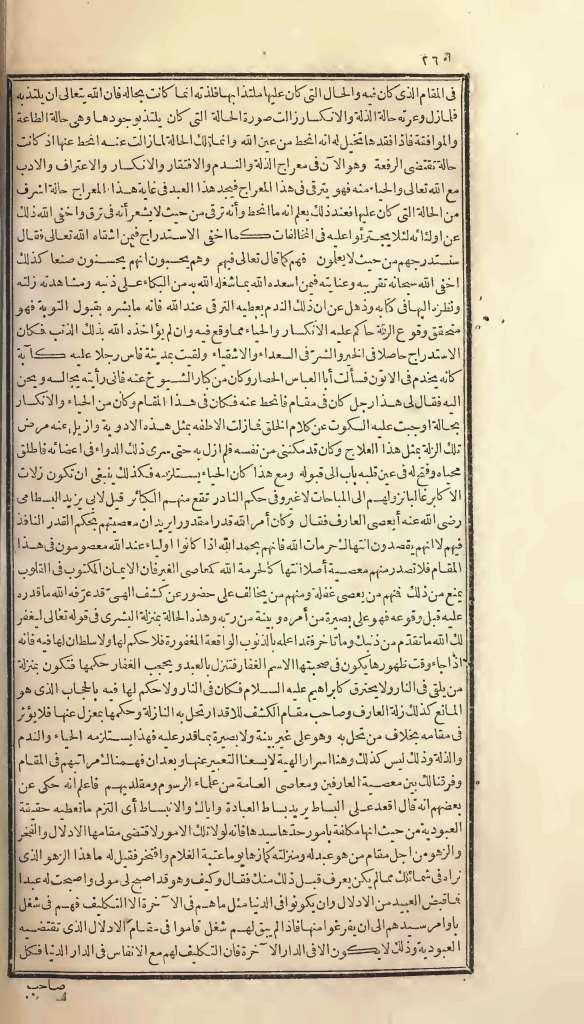 ٢٦٥
فى المقام الذى كان فيه والحال التى كان عليها ملتذا بها فلذته انما كانت بحاله فان الله يتعالى ان يلتذ به
فلما زل وعرته حالة الذلة والانكسار زالت صورة الحالة التى كان يلتذ بوجودها وهى حالة الطاعة
والموافقة فاذا فقدها تخيل له انه انحط من عين الله وانما تلك الحالة لما زالت عنه انحط عنها اذ كانت
حالة تقتضى الرفعة وهو الآن فى معراج الذلة والندم والافتقار والانكسار والاعتراف والادب
مع الله تعالى والحياء منه فهو يترقى فى هذا المعراج فيجد هذا العبد فى غاية هذا المعراج حالة اشرف
من الحالة التى كان عليها فعند ذلك يعلم انه ما انحط وأنه ترقى من حيث لا يشعر أنه فى ترق واخفى الله ذلك
عن اوليائه لئلا يجترئوا عليه فى المخالفات كما اخفى الاستدراج فيمن اشقاه الله تعالى فقال
سنستدرجهم من حيث لا يعلمون فهم كما قال تعالى فيهم وهم يحسبون انهم يحسنون صنعا كذلك
اخفى الله سبحانه تقريبه وعنايته فيمن اسعده الله بما شغله الله به من البكاء على ذنبه ومشاهدته زلته
ونظره اليها فى كتابه وذهل عن ان ذلك الندم يعطيه الترقى عند الله فانه ما بشره بقبول التوبة فهو
متحقق وقوع الزلة حاكم عليه الانكسار والحياء مما وقع فيه وان لم يؤاخذه الله بذلك الذنب فكان
الاستدراج حاصلا فى الخير والشر فى السعداء والاشقياء ولقيت بمدينة فاس رجلا عليه كآبة
كانه يخدم فى الاتون فسألت أبا العباس الحصار وكان من كبار الشيوخ عنه فانى رأيته يجالسه ويحن
اليه فقال لى هذا رجل كان فى مقام فانحط عنه فكان فى هذا المقام وكان من الحياء والانكسار
بحالة اوجبت عليه السكوت عن كلام الخلق فما زلت الاطفه بمثل هذه الادوية وازيل عنه مرض
تلك الزلة بمثل هذا العلاج وكان قد مكننى من نفسه فلم ازل به حتى سرى ذلك الدواء فى اعضائه فاطلق
محياه وفتح له فى عين قلبه باب الى قبوله ومع هذا كان الحياء يستلزمه فكذلك ينبغى ان تكون زلات
الاكابر غالبا نزولهم الى المباحات لا غير وفى حكم النادر تقع منهم الكبائر قيل لابى يزيد البسطامى
رضى الله عنه أيعصى العارف فقال وكان أمر الله قدرا مقدورا يريد ان معصيتهم بحكم القدر النافذ
فيهم لا انهم يقصدون انتهاك حرمات الله فانهم بحمد الله اذا كانوا اولياء عند الله معصومون فى هذا
المقام فلا تصدر منهم معصية أصلا انتهاكا لحرمة الله كمعاصى الغير فان الايمان المكتوب فى القلوب
يمنع من ذلك فمنهم من يعصى غفلة ومنهم من يخالف على حضور عن كشف الهىّ قد عرّفه الله ما قدره
عليه قبل وقوعه فهو على بصيرة من أمره وبينة من ربه وهذه الحالة بمنزلة البشرى فى قوله تعالى ليغفر
لك الله ما تقدم من ذنبك وما تأخر فقد اعله بالذنوب الواقعة المغفورة فلا حكم لها ولا سلطان لها فيه فانه
اذا جاء وقت ظهورها يكون فى صحبتها الاسم الغفار فتنزل بالعبد ويحجب الغفار حكمها فتكون بمنزلة
من يلقى فى النار ولا يحترق كابراهيم عليه السلام فكان فى النار ولا حكم لها فيه بالحجاب الذى هو
المانع كذلك زلة العارف وصاحب مقام الكشف للاقدار تحل به النازلة وحكمها بمعزل عنها فلا يؤثر
فى مقامه بخلاف من تحل به وهو على غير بينة ولا بصيرة بما قدر عليه فهذا يستلزمه الحياء والندم
والذلة وذلك ليس كذلك وهنا اسرار الهية لا يسعنا التعبير عنها وبعد ان فهمناك مراتبهم فى المقام
وفرقنا لك بين معصية العارفين ومعاصى العامة من علماء الرسوم ومقلديهم فاعلم انه حكى عن
بعضهم انه قال اقعد على البساط يريد بساط العبادة واياك والانبساط أى التزم ما تعطيه حقيقة
العبودية من حيث انها مكلفة بامور حدّها سيدها فانه لولا تلك الامور لاقتضى مقامها الادلال والفخر
والزهو من اجل مقام من هو عبد له ومنزلته كما زها يوما عتبة الغلام وافتخر فقيل له ما هذا الزهو الذى
نراه فى شمائلك مما لم يكن يعرف قبل ذلك منك فقال وكيف وهو قد اصبح لى مولى واصبحت له عبدا
فما قبض العبيد من الادلال وان يكونوا فى الدنيا مثل ما هم فى الآخرة الا التكليف فهم فى شغل
باوامر سيدهم الى ان يفرغوا منها فاذا لم يبق لهم شغل قاموا فى مقام الادلال الذى تقتضيه
العبودية وذلك لا يكون الا فى الدار الآخرة فان التكليف لهم مع الانفاس فى الدار الدنيا فكل
صاحب